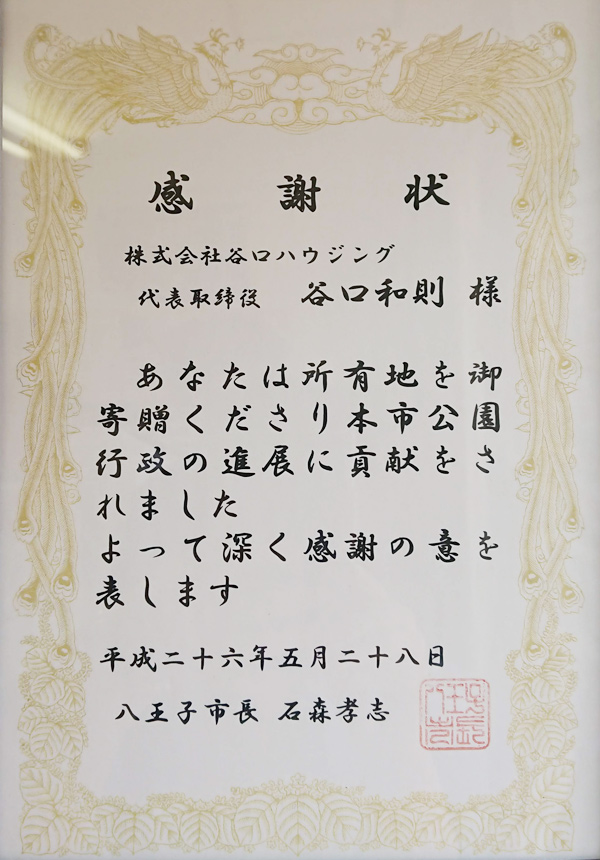 感謝状
株式会社谷口ハウジング
代表取締役 谷口和則 様
あなたは所有地を御
寄贈くださり本市公園
行政の進展に貢献をさ
れました
よって深く感謝の意を
表します
平成二十六年五月二十八日
八王子市長 石森孝志